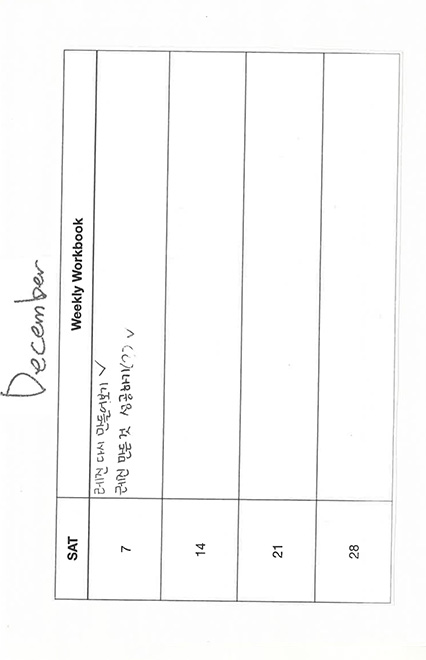 December
SAT
Weekly Workbook
7
라진 다시 만들어보기 ✓
라진 만든 것 사용해보기(?) ✓
14
21
28